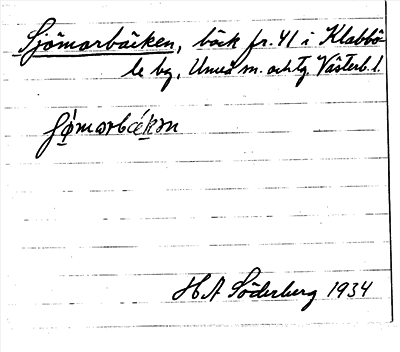 Sjömorbäcken, bäck fr. 41 i Klabbö-
le by, Umeå m. och tg. Västerb. l.
H A Söderberg 1934